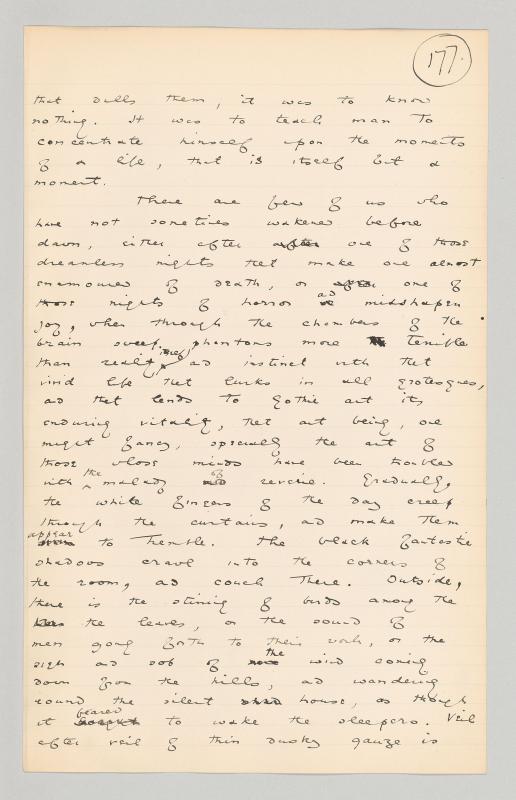 177.
that dulls them, it was to know
nothing. It was to teach man to
concentrate himself upon the moments
of a life, that is itself but a
moment.
There are few of us who
have not sometimes wakened before
dawn, either after after one of those
dreamless nights that make one almost
enamoured of death, or after one of
those nights of horror ad misshapen
joy, when through the chambers of the
brain sweep phantoms more terrible
than reality itself, ad instinct with that
vivid life that lurks in all grotesques,
ad that lends to Gothic art its
enduring vitality, that art being, one
might fancy, specially the art of
those whose minds have been troubled
with the malady of reverie. Gradually,
the white fingers of the day creep
through the curtains, ad make them
appear to tremble. The black fantastic
shadows crawl into the corners of
the room, ad couch there. Outside,
there is the stirring of birds among the
the leaves, or the sound of
men going forth to their work, or the
sigh ad sob of the wind coming
down from the hills, ad wandering
round the silent house, as though
it feared to wake the sleepers. Veil
after veil of thin dusky gauze is